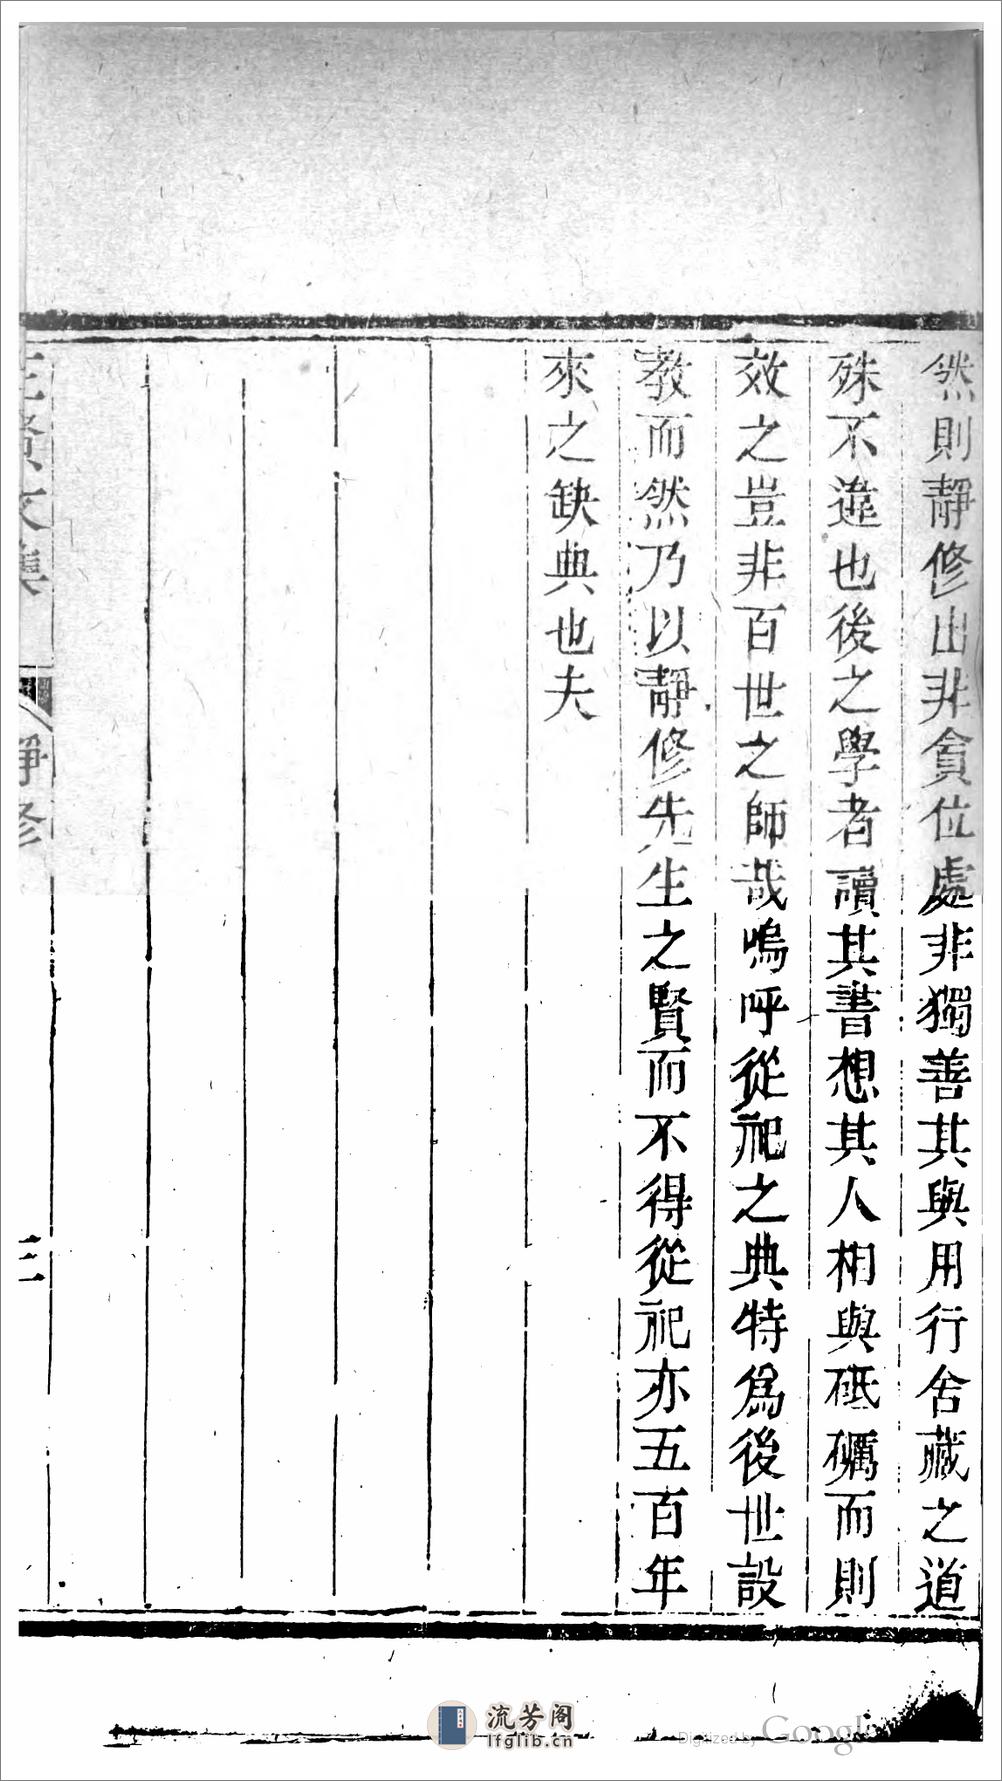 然則靜修出非貪位處非獨善其與用行舍藏之道
殊不違也後之學者讀其書想其人相與砥礪而則
效之豈非百世之師哉嗚呼從祀之典特爲後世設
教而然乃以靜修先生之賢而不得從祀亦五百年
來之缺典也夫
三賢文集 靜修 三
流芳阁
lfglib.cn
Digitized by Google